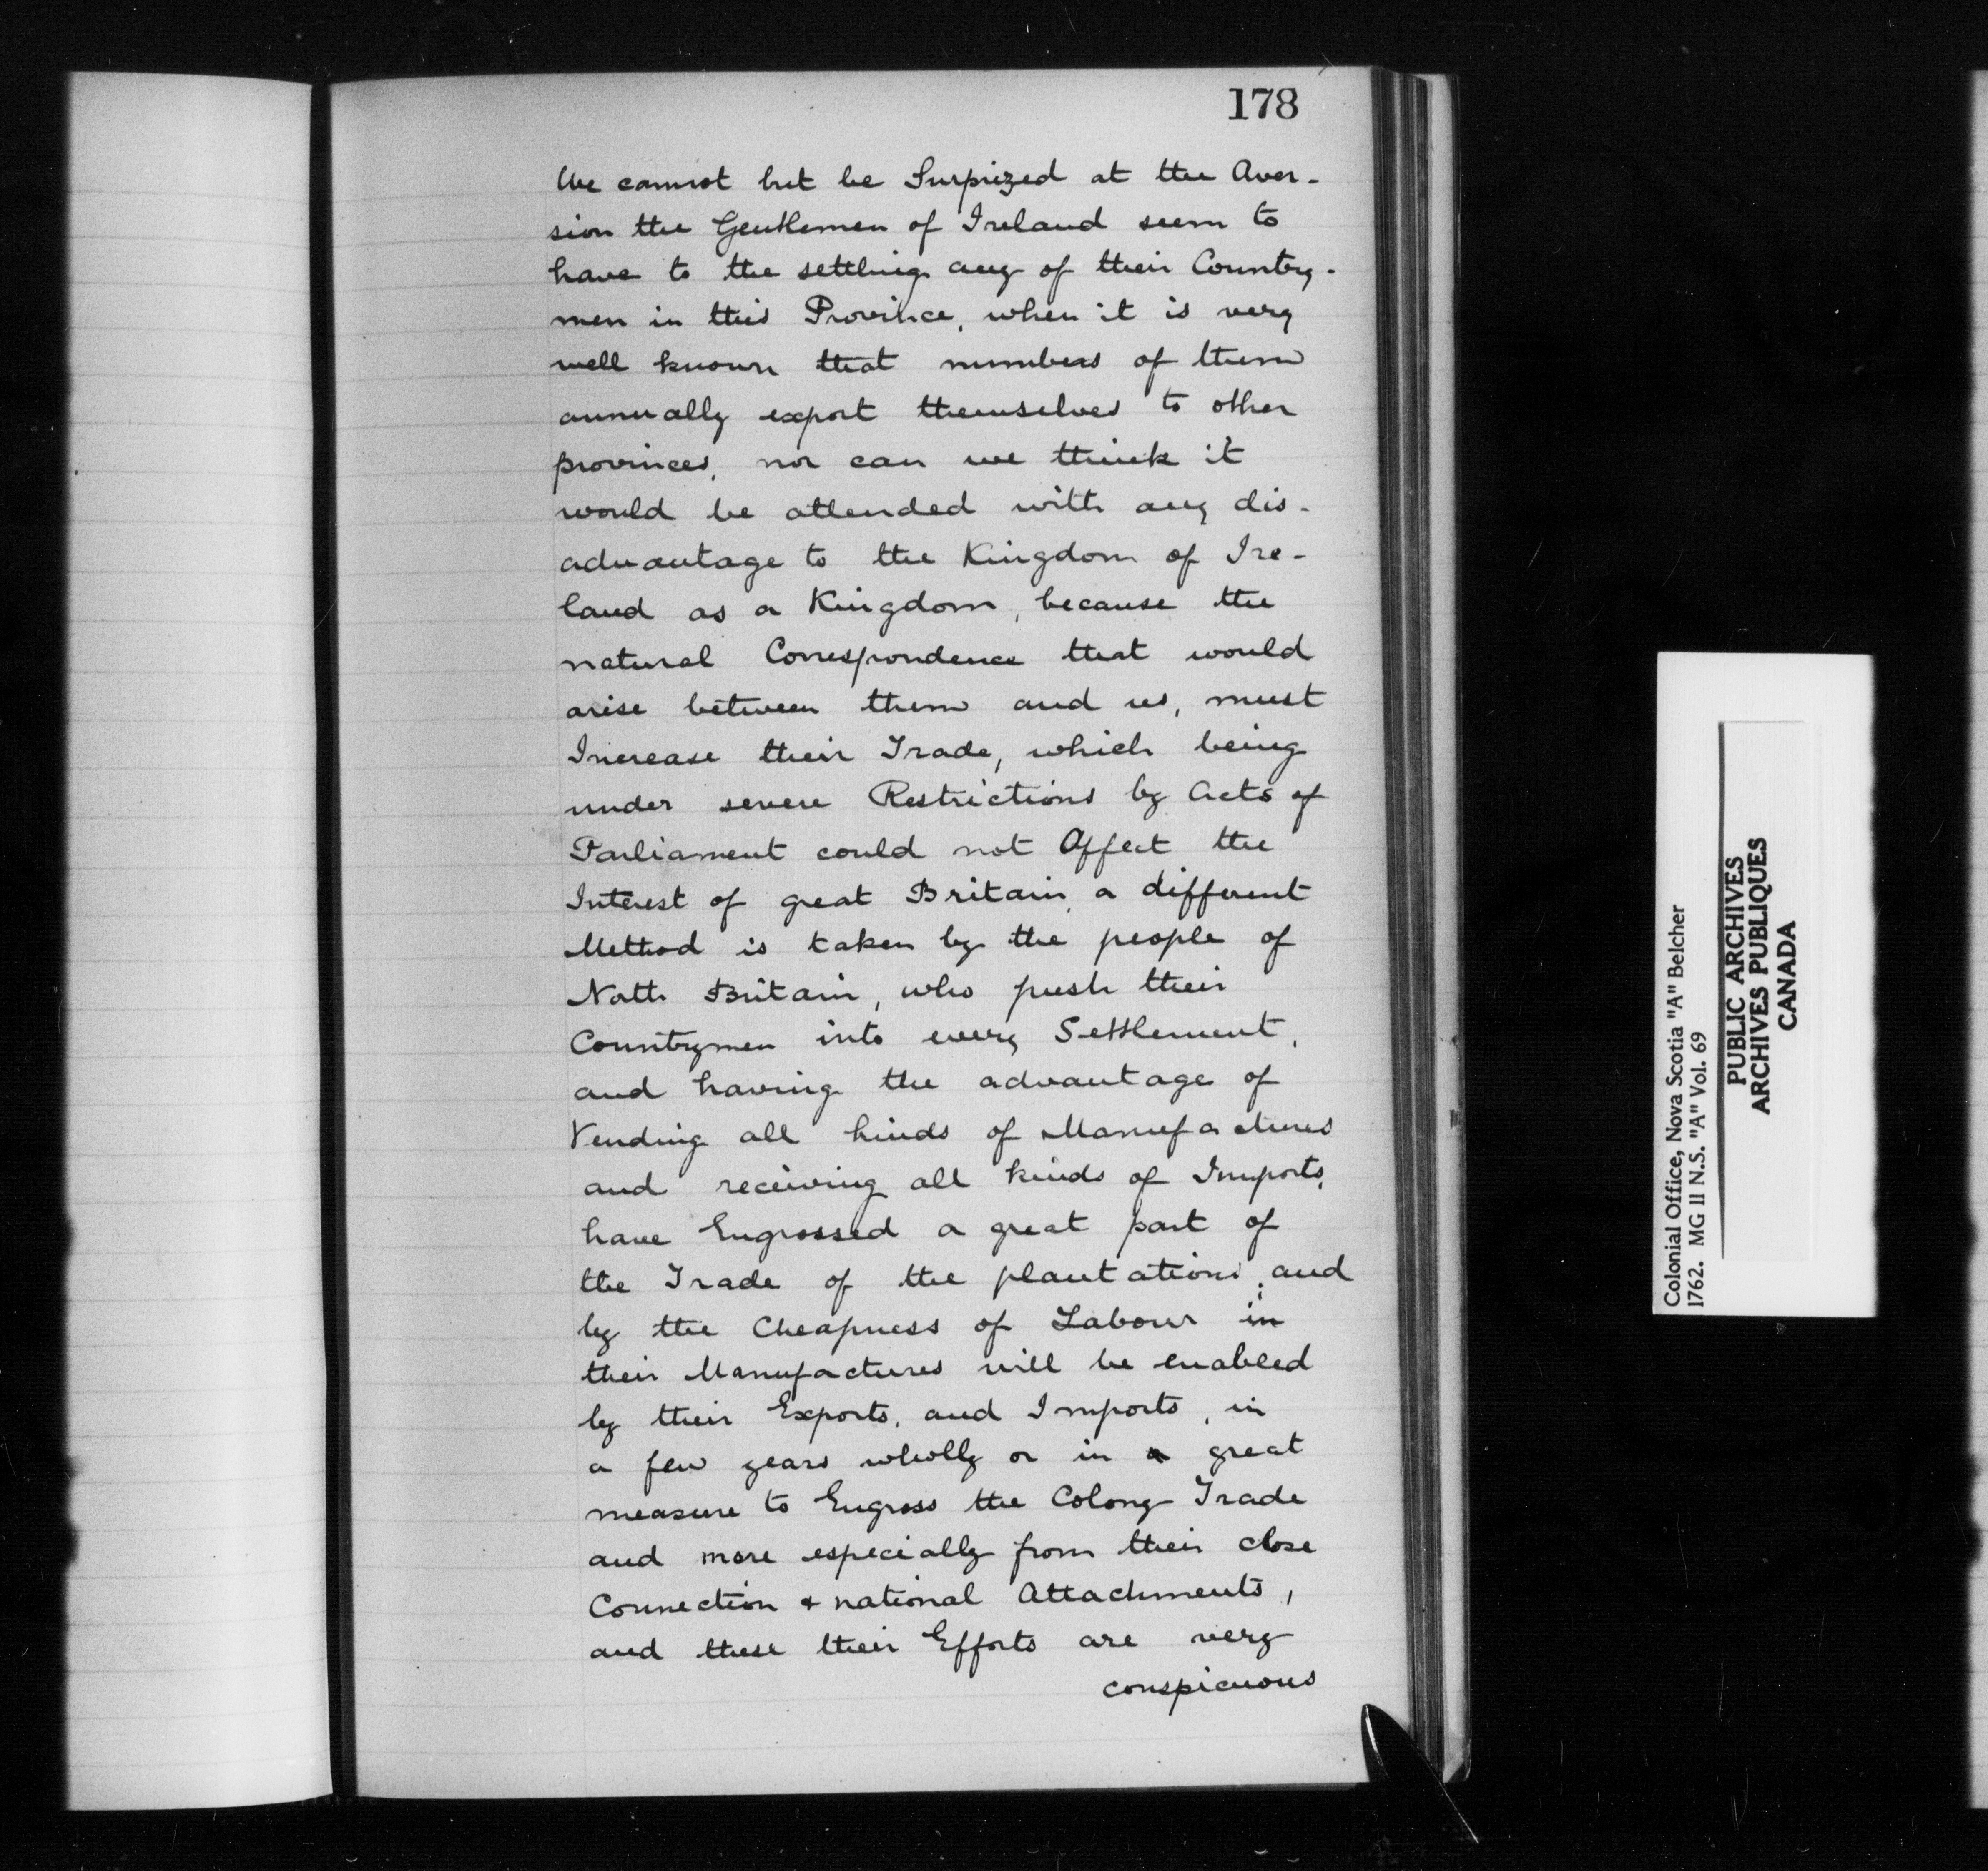 178
We cannot but be Surprized at the Aver-
sion the Gentlemen of Ireland seem to
have to the settling any of their Country-
men in this Province, when it is very
well known that numbers of them
annually export themselves to other
provinces, nor can we think it
would be attended with any dis-
advantage to the Kingdom of Ire-
land as a Kingdom, because the
natural Correspondence that would
arise between them and us, must
Increase their Trade, which being
under severe Restrictions by Acts of
Parliament could not Affect the
Interest of great Britain, a different
Method is taken by the people of
North Britain, who push their
Countrymen into every Settlement,
and having the advantage of
Vending all kinds of Manufactures
and receiving all kinds of Imports,
have Engrossed a great part of
the Trade of the plantations; and
by the Cheapness of Labour in
their Manufactures will be enabled
by their Exports, and Imports, in
a few years wholly or in a great
measure to Engross the Colony Trade
and more especially from their close
Connection & national Attachments,
and these their Efforts are very
conspicuous
Colonial Office, Nova Scotia "A" Belcher
1762. MG 11 N.S. "A" Vol. 69
PUBLIC ARCHIVES
ARCHIVES PUBLIQUES
CANADA